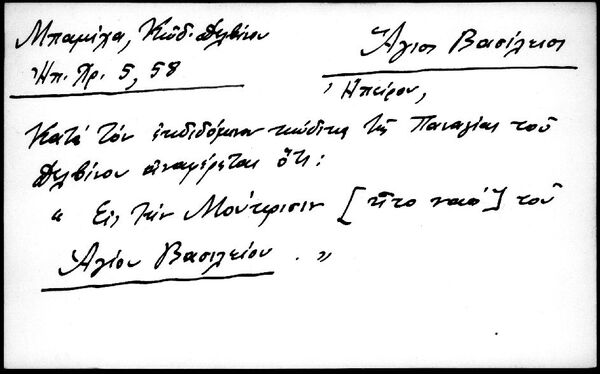 Μπαμίχα, Κῶδ. Δελβίνου
Ἠπ. Χρ. 5, 58
Ἅγιος Βασίλειος
Ἠπείρου,
Κατά τόν ἐκδιδόμενον κώδικα τῆς Παναγίας τοῦ
Δελβίνου ἀναφέρεται ὅτι:
" Εἰς τήν Μούτρισιν [ ναό] τοῦ
Ἁγίου Βασιλείου . "